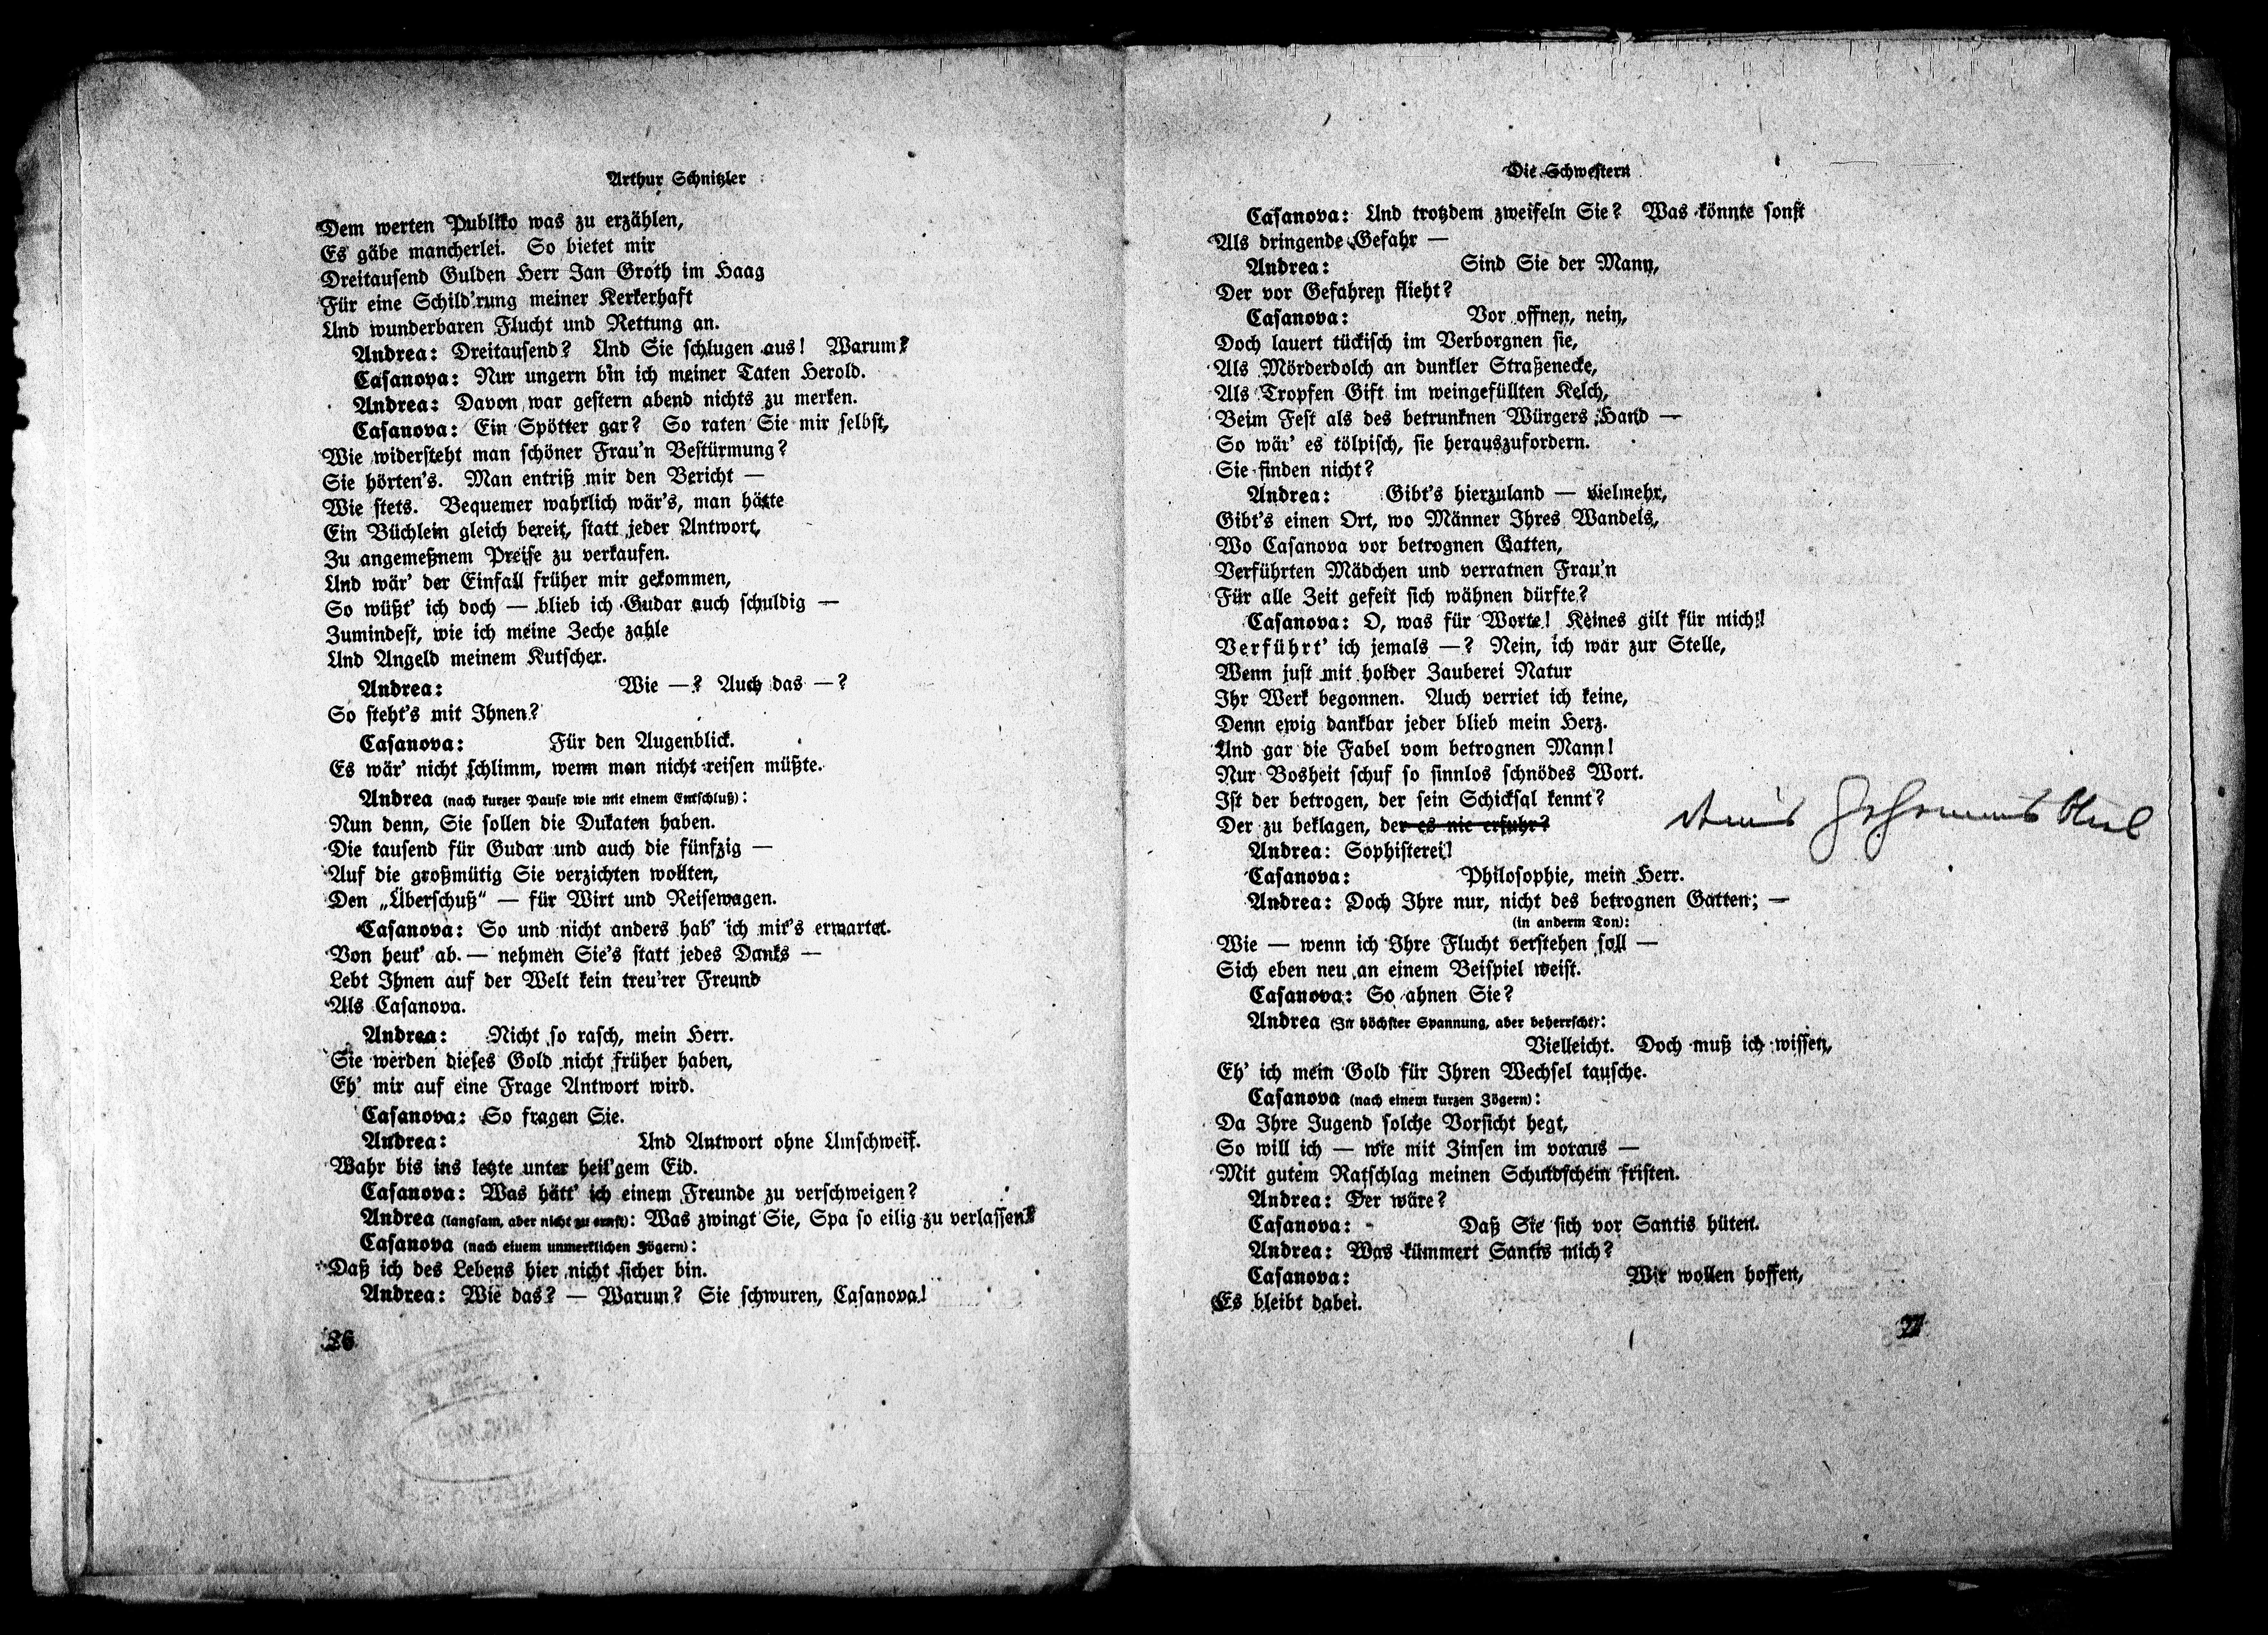 Arthur Schnitzler
Dem werten Publiko was zu erzählen,
Es gäbe mancherlei. So bietet mir
Dreitauſend Gulden Herr Jan Groth im Haag
Für eine Schild'rung meiner Kerkerhaft
Und wunderbaren Flucht und Rettung an.
Andrea: Dreitauſend? Und Sie ſchlugen aus! Warum?
Caſanova: Nur ungern bin ich meiner Taten Herold.
Andrea: Davon war geſtern abend nichts zu merken.
Caſanova: Ein Spötter gar? So raten Sie mir ſelbſt,
Wie widerſteht man ſchöner Frau'n Beſtürmung?
Sie hörten's. Man entriß mir den Bericht —
Wie ſtets. Bequemer wahrlich wär's, man hätte
Ein Büchlein gleich bereit, ſtatt jeder Antwort,
Zu angemeßnem Preiſe zu verkaufen.
Und wär' der Einfall früher mir gekommen,
So wüßt' ich doch — blieb ich Gudar auch ſchuldig —
Zumindeſt, wie ich meine Zeche zahle
Und Angeld meinem Kutſcher.
Andrea: Wie —? Auch das —?
So ſteht's mit Ihnen?
Caſanova: Für den Augenblick.
Es wär' nicht ſchlimm, wenn man nicht reiſen müßte.
Andrea (nach kurzer Pauſe wie mit einem Entſchluß):
Nun denn, Sie ſollen die Dukaten haben.
Die tauſend für Gudar und auch die fünfzig —
Auf die großmütig Sie verzichten wollten,
Den „Überſchuß“ — für Wirt und Reiſewagen.
Caſanova: So und nicht anders hab' ich mir's erwartet.
Von heut' ab — nehmen Sie's ſtatt jedes Danks —
Lebt Ihnen auf der Welt kein treu'rer Freund
Als Caſanova.
Andrea: Nicht ſo raſch, mein Herr.
Sie werden dieſes Gold nicht früher haben,
Eh' mir auf eine Frage Antwort wird.
Caſanova: So fragen Sie.
Andrea: Und Antwort ohne Umſchweif.
Wahr bis ins letzte unter heil'gem Eid.
Caſanova: Was hätt' ich einem Freunde zu verſchweigen?
Andrea (langſam, aber nicht zu ernſt): Was zwingt Sie, Spa ſo eilig zu verlaſſen?
Caſanova (nach einem unmerklichen Zögern):
Daß ich des Lebens hier nicht ſicher bin.
Andrea: Wie das? — Warum? Sie ſchwuren, Caſanova!
26
Die Schweſtern
Caſanova: Und trotzdem zweifeln Sie? Was könnte ſonſt
Als dringende Gefahr —
Andrea: Sind Sie der Mann,
Der vor Gefahren flieht?
Caſanova: Vor offnen, nein,
Doch lauert tückiſch im Verborgnen ſie,
Als Mörderdolch an dunkler Straßenecke,
Als Tropfen Gift im weingefüllten Kelch,
Beim Feſt als des betrunknen Würgers Hand —
So wär' es tölpiſch, ſie herauszufordern.
Sie finden nicht?
Andrea: Gibt's hierzuland — vielmehr,
Gibt's einen Ort, wo Männer Ihres Wandels,
Wo Caſanova vor betrognen Gatten,
Verführten Mädchen und verratnen Frau'n
Für alle Zeit gefeit ſich wähnen dürfte?
Caſanova: O, was für Worte! Keines gilt für mich!
Verführt' ich jemals —? Nein, ich war zur Stelle,
Wenn juſt mit holder Zauberei Natur
Ihr Werk begonnen. Auch verriet ich keine,
Denn ewig dankbar jeder blieb mein Herz.
Und gar die Fabel vom betrognen Mann!
Nur Bosheit ſchuf ſo ſinnlos ſchnödes Wort.
Iſt der betrogen, der ſein Schickſal kennt?
Der zu beklagen, der es nie erfuhr?
Andrea: Sophiſterei!
Caſanova: Philoſophie, mein Herr.
Andrea: Doch Ihre nur, nicht des betrognen Gatten; —
(in anderm Ton):
Wie — wenn ich Ihre Flucht verſtehen ſoll —
Sich eben neu an einem Beiſpiel weiſt.
Caſanova: So ahnen Sie?
Andrea (In höchſter Spannung, aber beherrſcht):
Vielleicht. Doch muß ich wiſſen,
Eh' ich mein Gold für Ihren Wechſel tauſche.
Caſanova (nach einem kurzen Zögern):
Da Ihre Jugend ſolche Vorſicht hegt,
So will ich — wie mit Zinſen im voraus —
Mit gutem Ratſchlag meinen Schuldſchein friſten.
Andrea: Der wäre?
Caſanova: Daß Sie ſich vor Santis hüten.
Andrea: Was kümmert Santis mich?
Caſanova: Wir wollen hoffen,
Es bleibt dabei.
27